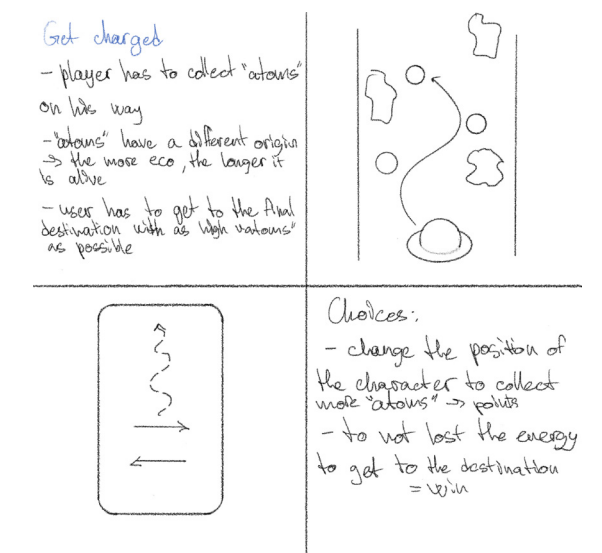 Get charged
- player has to collect "atoms"
on his way
- "atoms" have a different origin
→ the more eco, the longer it
is alive
- user has to get to the final
destination with as high "atoms"
as possible
Choices:
- change the position of
the character to collect
more "atoms" → points
- to not lost the energy
to get to the destination
= win